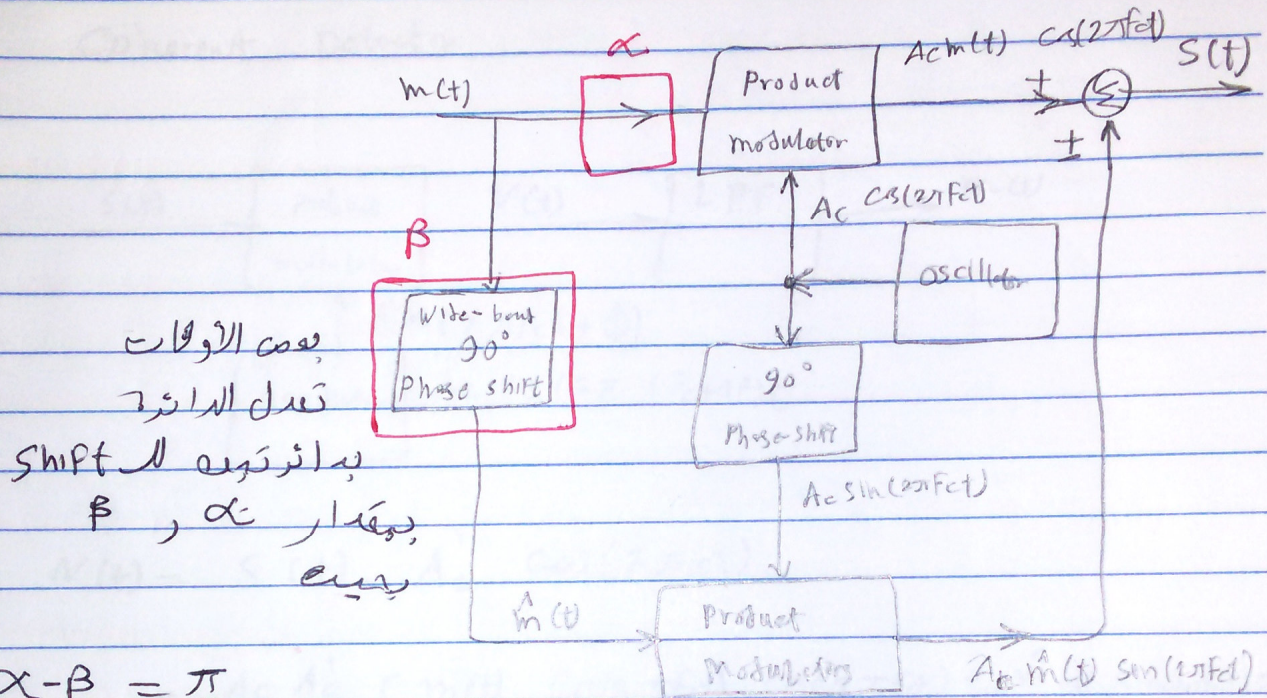 α
m(t)
Product
modulator
Acm(t) cos(2πfct)
S(t)
+
±
Σ
Ac cos(2πfct)
oscillator
β
Wide-band
90°
Phase shift
90°
Phase-shift
Ac sin(2πfct)
بعض الأوقات
تعدل الدائرة
shift لل
بمقدار α و β
بحيث
α-β = π
m̂(t)
Product
Modulators
m̂(t) sin(2πfct)